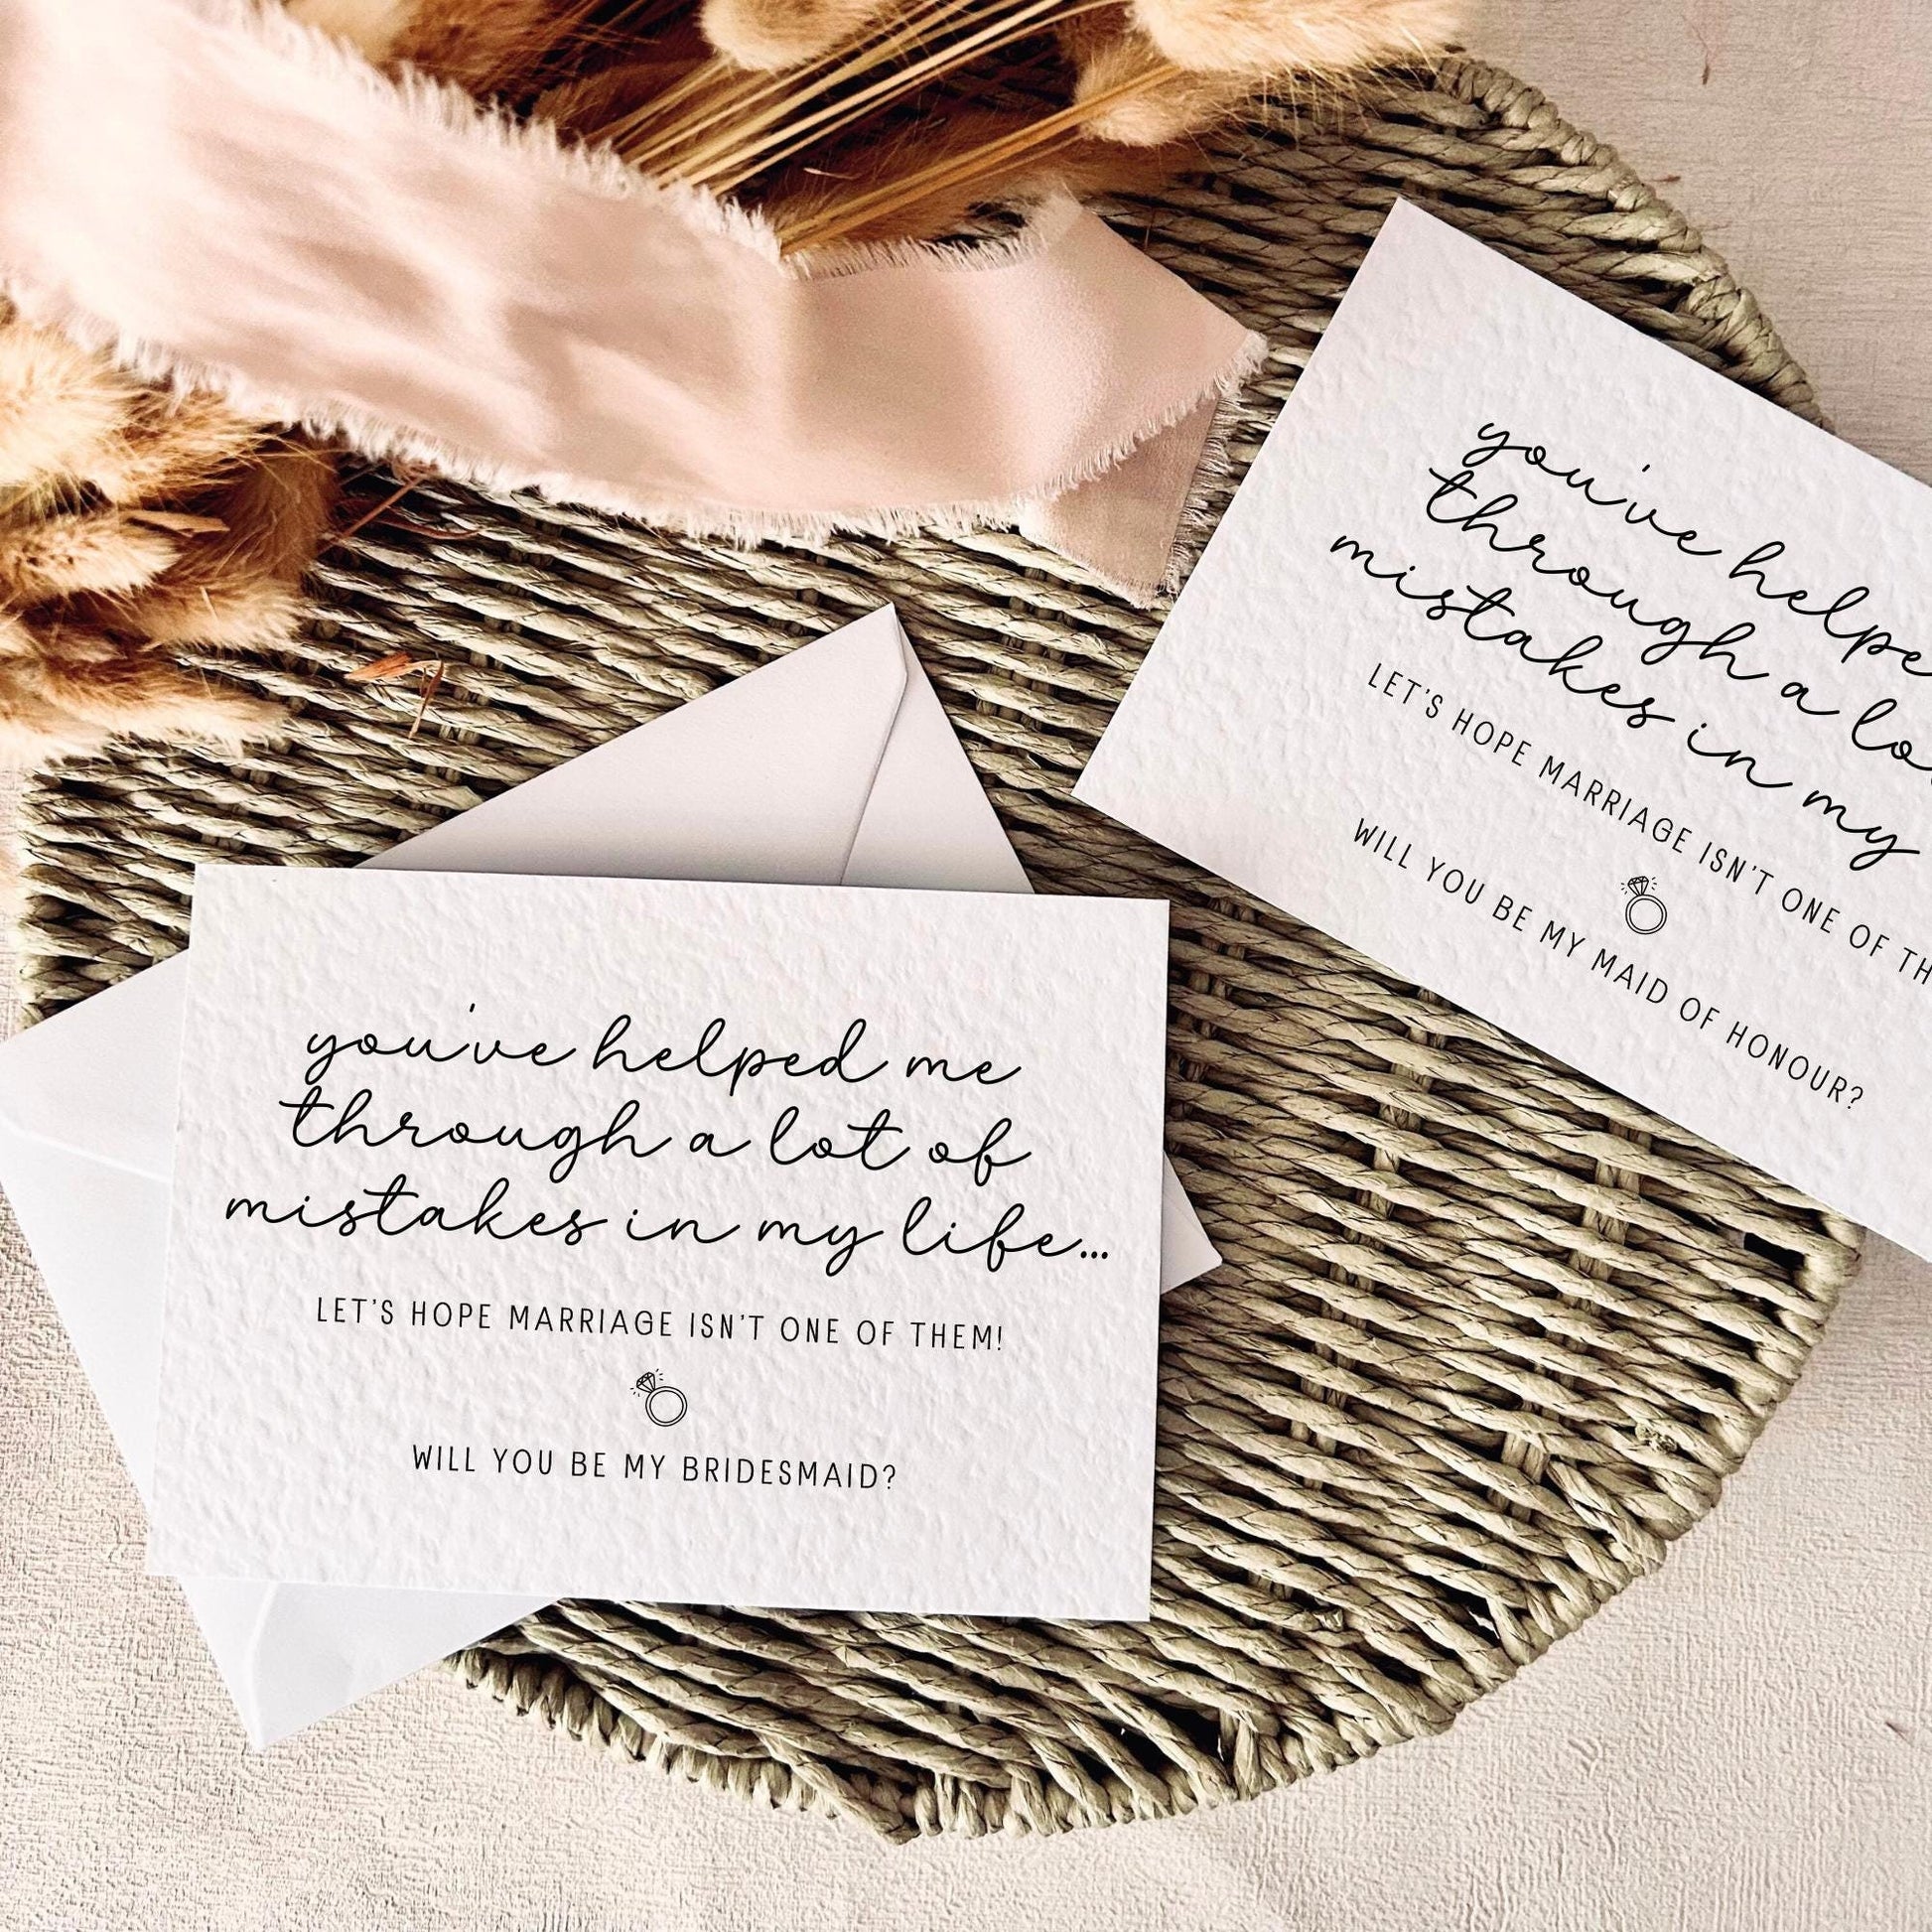 you've helped me
through a lot of
mistakes in my life...
LET'S HOPE MARRIAGE ISN'T ONE OF THEM!
WILL YOU BE MY BRIDESMAID?
you've
through a
mistakes in my
LET'S HOPE MARRIAGE ISN'T ONE OF
WILL YOU BE MY MAID OF HONOUR?